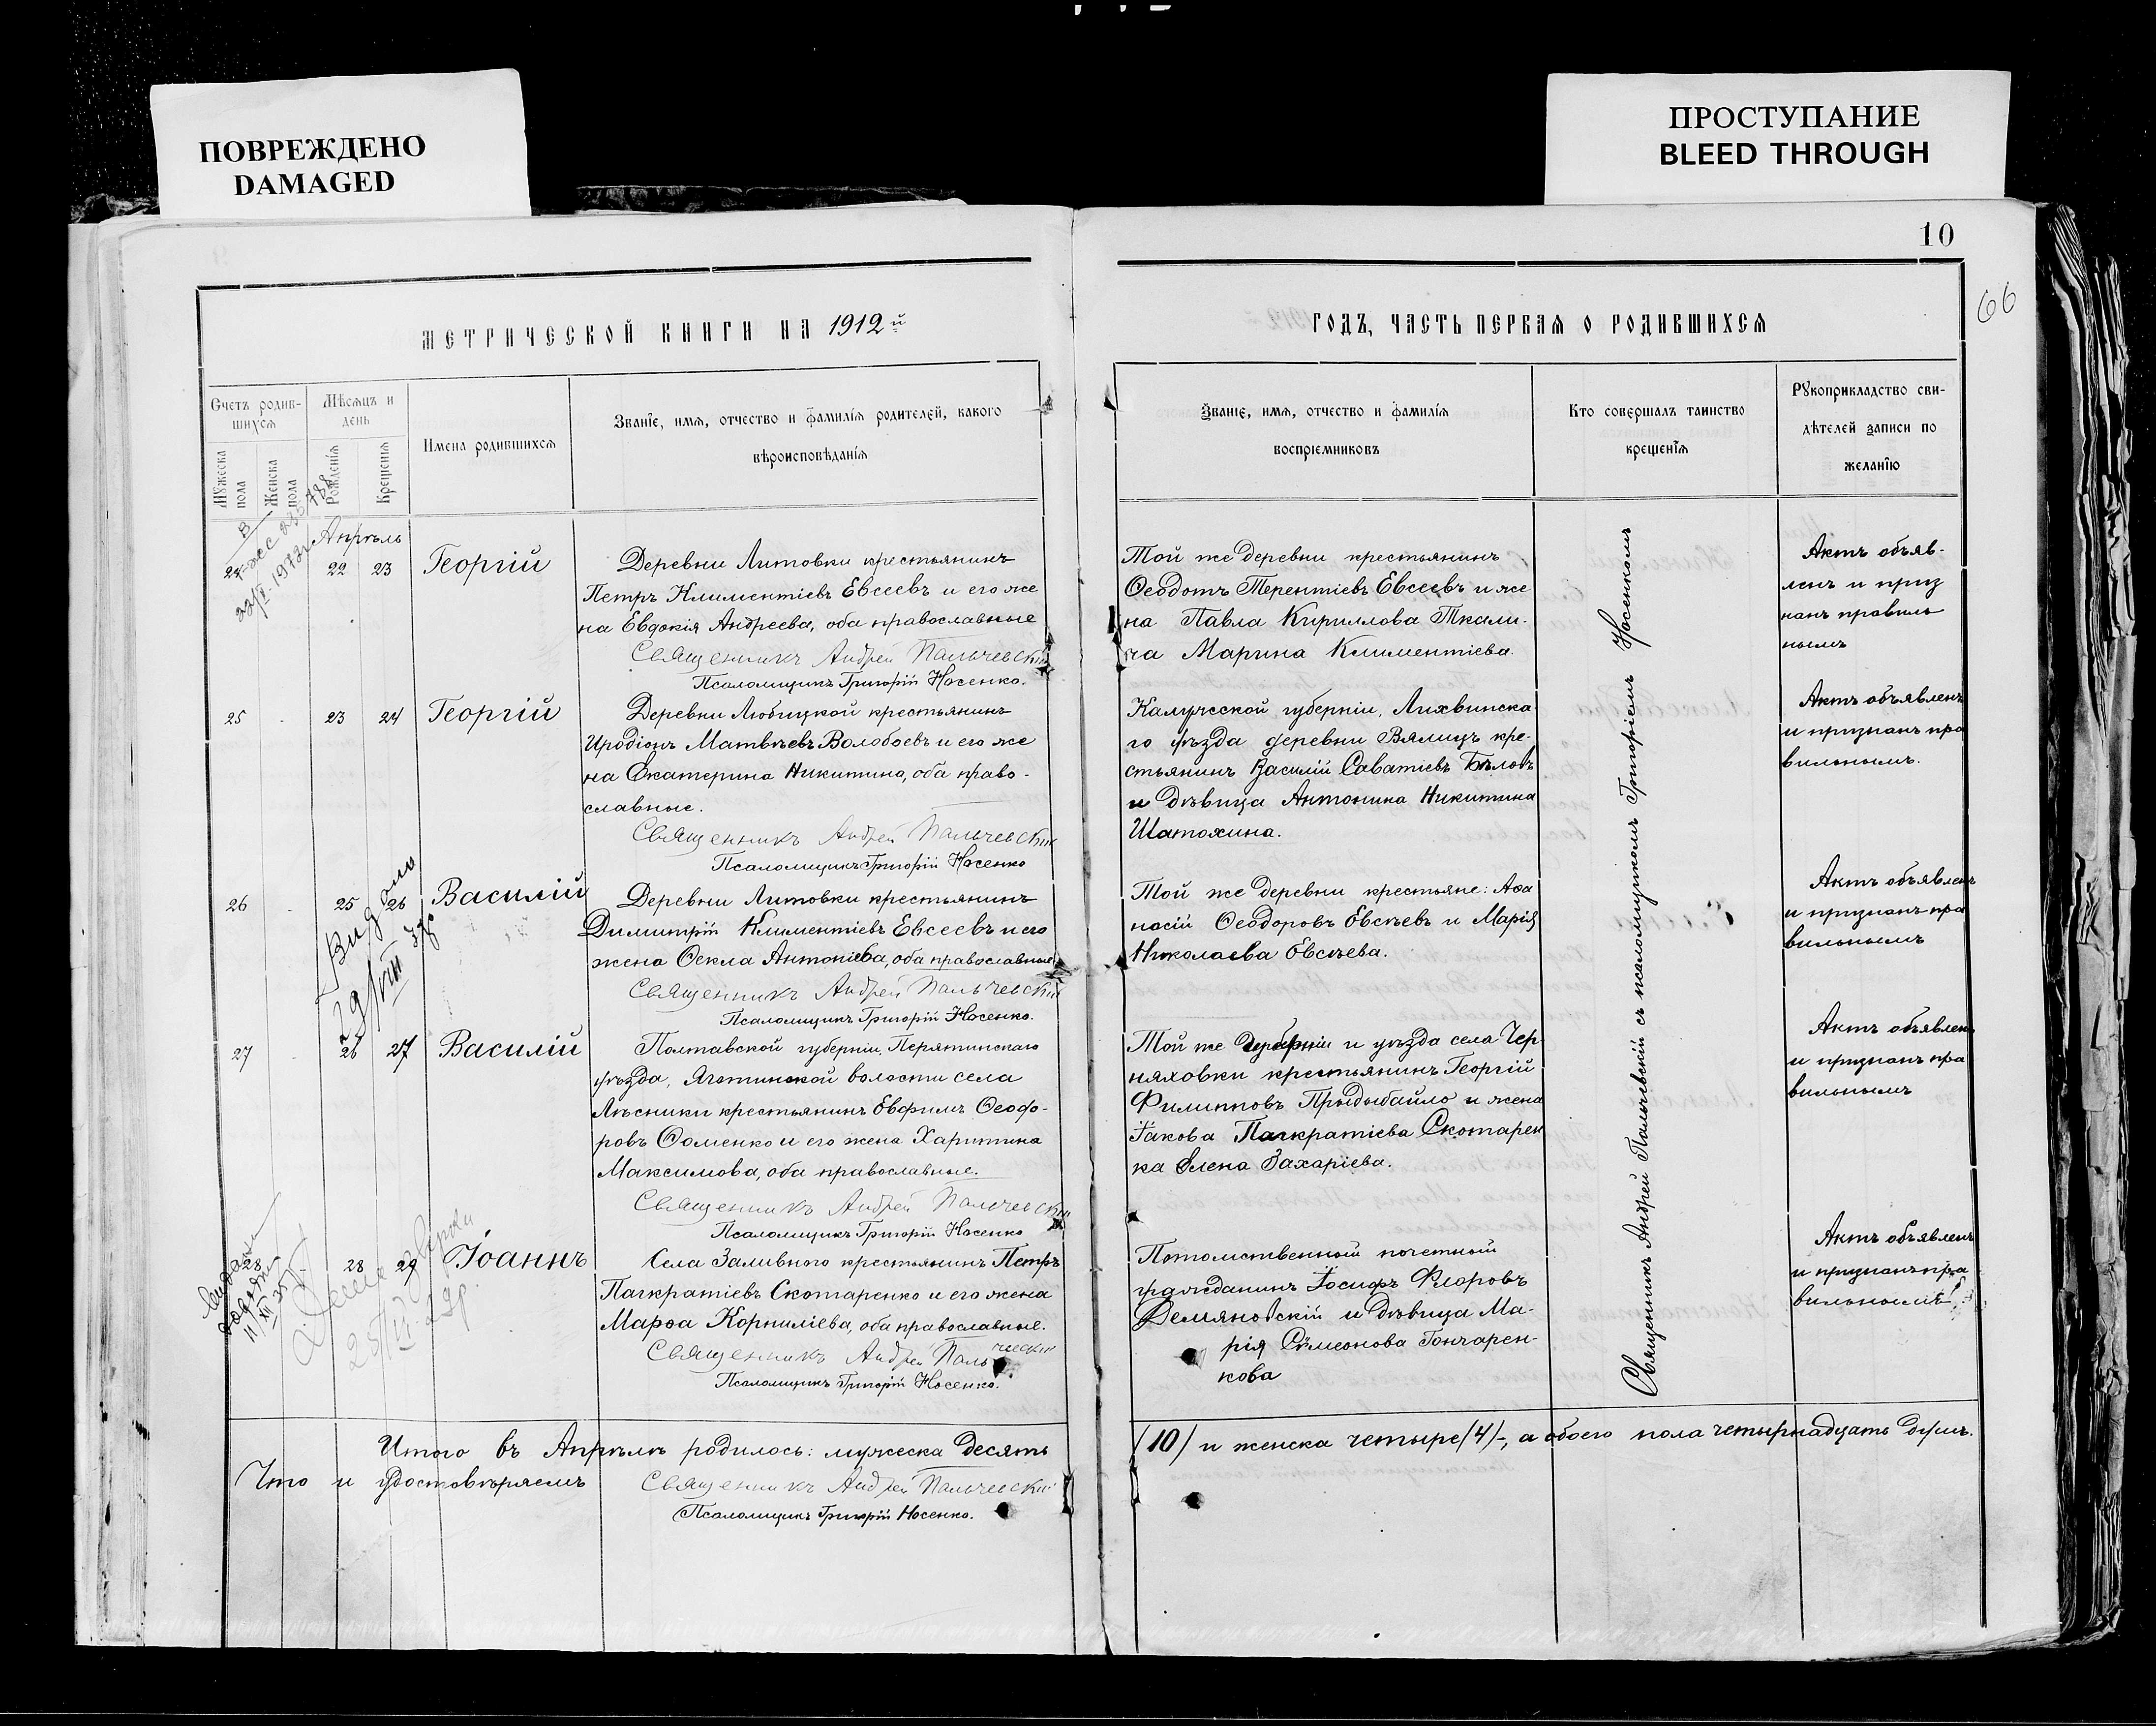 ПОВРЕЖДЕНО
DAMAGED
ПРОСТУПАНИЕ
BLEED THROUGH
10
66
МЕТРИЧЕСКОЙ КНИГИ НА 1912й
ГОДЪ, ЧАСТЬ ПЕРВАЯ О РОДИВШИХСЯ
Счетъ родив-
шихся
Мѣсяцъ и
день
Мужеска
пола
Женска
пола
Рожденія
Крещенія
Имена родившихся
Званіе, имя, отчество и фамилія родителей, какого
вѣроисповѣданія
Званіе, имя, отчество и фамилія
воспріемниковъ
Кто совершалъ таинство
крещенія
Рукоприкладство сви-
дѣтелей записи по
желанію
Апрѣль
24 22 23 Георгій
Деревни Литовки крестьянинъ
Петръ Климентіевъ Евсеевъ и его же
на Евдокія Андреева, оба православные
Священникъ Андрей Пальчевскій
Псаломщикъ Григорій Носенко.
Той же деревни крестьянинъ
Ѳеодотъ Терентіевъ Евсеевъ и же
на Павла Кириллова Ткали-
ча Марина Климентіева.
Актъ объяв-
ленъ и приз
нанъ правиль
нымъ
25 - 23 24 Георгій
Деревни Любицкой крестьянинъ
Иродіонъ Матвѣевъ Волобоевъ и его же
на Екатерина Никитина, оба право-
славные.
Священникъ Андрей Пальчевскій
Псаломщикъ Григорій Носенко
Калужской губерніи, Лихвинска
го уѣзда деревни Вялицъ кре-
стьянинъ Василій Саватіевъ Бѣловъ
и дѣвица Антонина Никитина
Шатохина.
Актъ объявленъ
и признанъ пра
вильнымъ.
26 - 25 26 Василій
Выдано
29/VIII 37г
Деревни Литовки крестьянинъ
Димитрій Климентіевъ Евсеевъ и его
жена Ѳекла Антоніева, оба православные
Священникъ Андрей Пальчевскій
Псаломщикъ Григорій Носенко.
Той же деревни крестьяне: Аѳа
насій Ѳеодоровъ Евсѣевъ и Марія
Николаева Евсѣева.
Актъ объявленъ
и признанъ пра
вильнымъ
27 - 26 27 Василій
Полтавской губерніи, Пирятинскаго
уѣзда, Яготинской волости села
Лѣсники крестьянинъ Евфимъ Ѳеодо-
ровъ Ѳоменко и его жена Харитина
Максимова, оба православные.
Священникъ Андрей Пальчевскій
Псаломщикъ Григорій Носенко
Той же губерніи и уѣзда села Чер
няховки крестьянинъ Георгій
Филипповъ Прыдыбайло и жена
Іакова Панкратіева Скотарен
ка Елена Захаріева.
Актъ объявленъ
и признанъ пра
вильнымъ
28 - 28 29 Іоаннъ
Села Заливного крестьянинъ Петръ
Панкратіевъ Скотаренко и его жена
Марѳа Корниліева, оба православные.
Священникъ Андрей Пальчевскій
Псаломщикъ Григорій Носенко.
Потомственный почетный
гражданинъ Іосифъ Флоровъ
Демяновскій и дѣвица Ма-
рія Сѵмеонова Гончарен-
кова
Актъ объявленъ
и признанъ пра
вильнымъ
Священникъ Андрей Пальчевскій съ псаломщикомъ Григоріемъ Носенкомъ
Итого въ Апрѣлѣ родилось: мужеска десять (10) и женска четыре (4) -, а обоего пола четырнадцать душъ.
Что и удостовѣряемъ Священникъ Андрей Пальчевскій
Псаломщикъ Григорій Носенко.